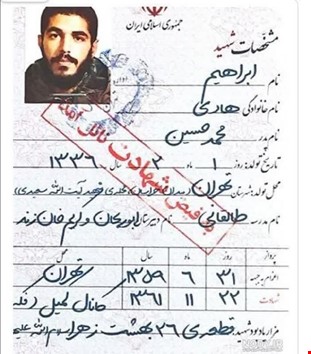 جمهوری اسلامی ایران
مشخصات شهید
نام ابراهیم
نام خانوادگی هادی
نام پدر محمد حسین
تاریخ تولد: روز ۱ ماه ۲ سال ۱۳۳۶
محل تولد: شهرستان تهران
نام مدرسه طالقانی دبیرستان ابوریحان و کریم خان زند
به فیض شهادت نائل آمد
پرواز روز ماه سال محل
اعزام به جبهه ۳۱ ۶ ۱۳۵۹ تهران
شهادت ۲۲ ۱۱ ۱۳۶۱ کانال کمیل
مزار یادبود شهید قطعه ی ۲۶ بهشت زهرا